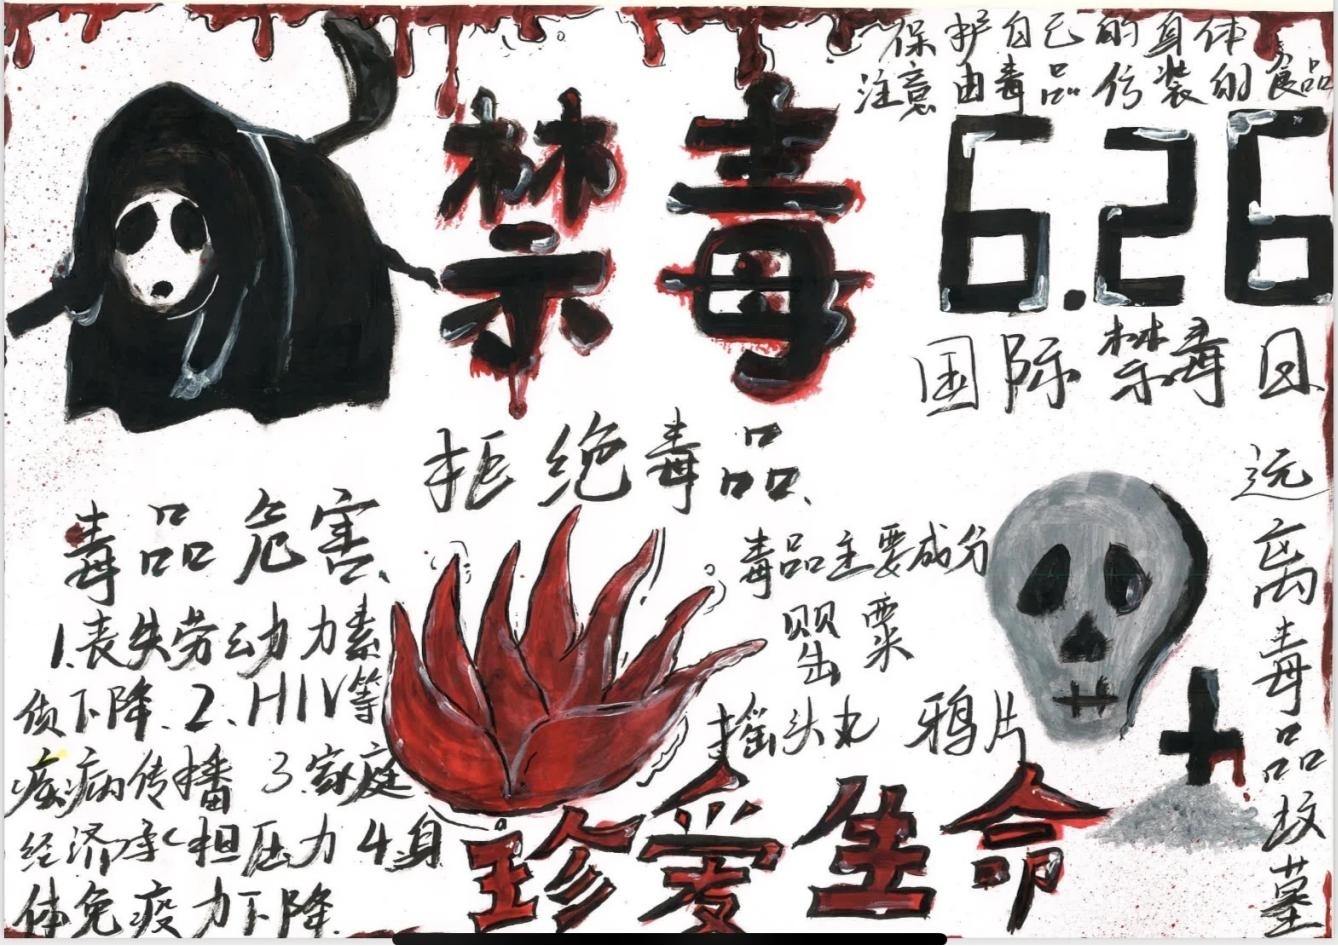 保护自己的身体
注意由毒品仿装的食品
禁毒
6.26
国际禁毒日
拒绝毒品
毒品危害
1.丧失劳动力素
质下降.2、HIV等
疾病传播 3.家庭
经济承担压力4身
体免疫力下降.
毒品主要成分
罂粟
摇头丸 鸦片
珍爱生命
远离毒品坟墓